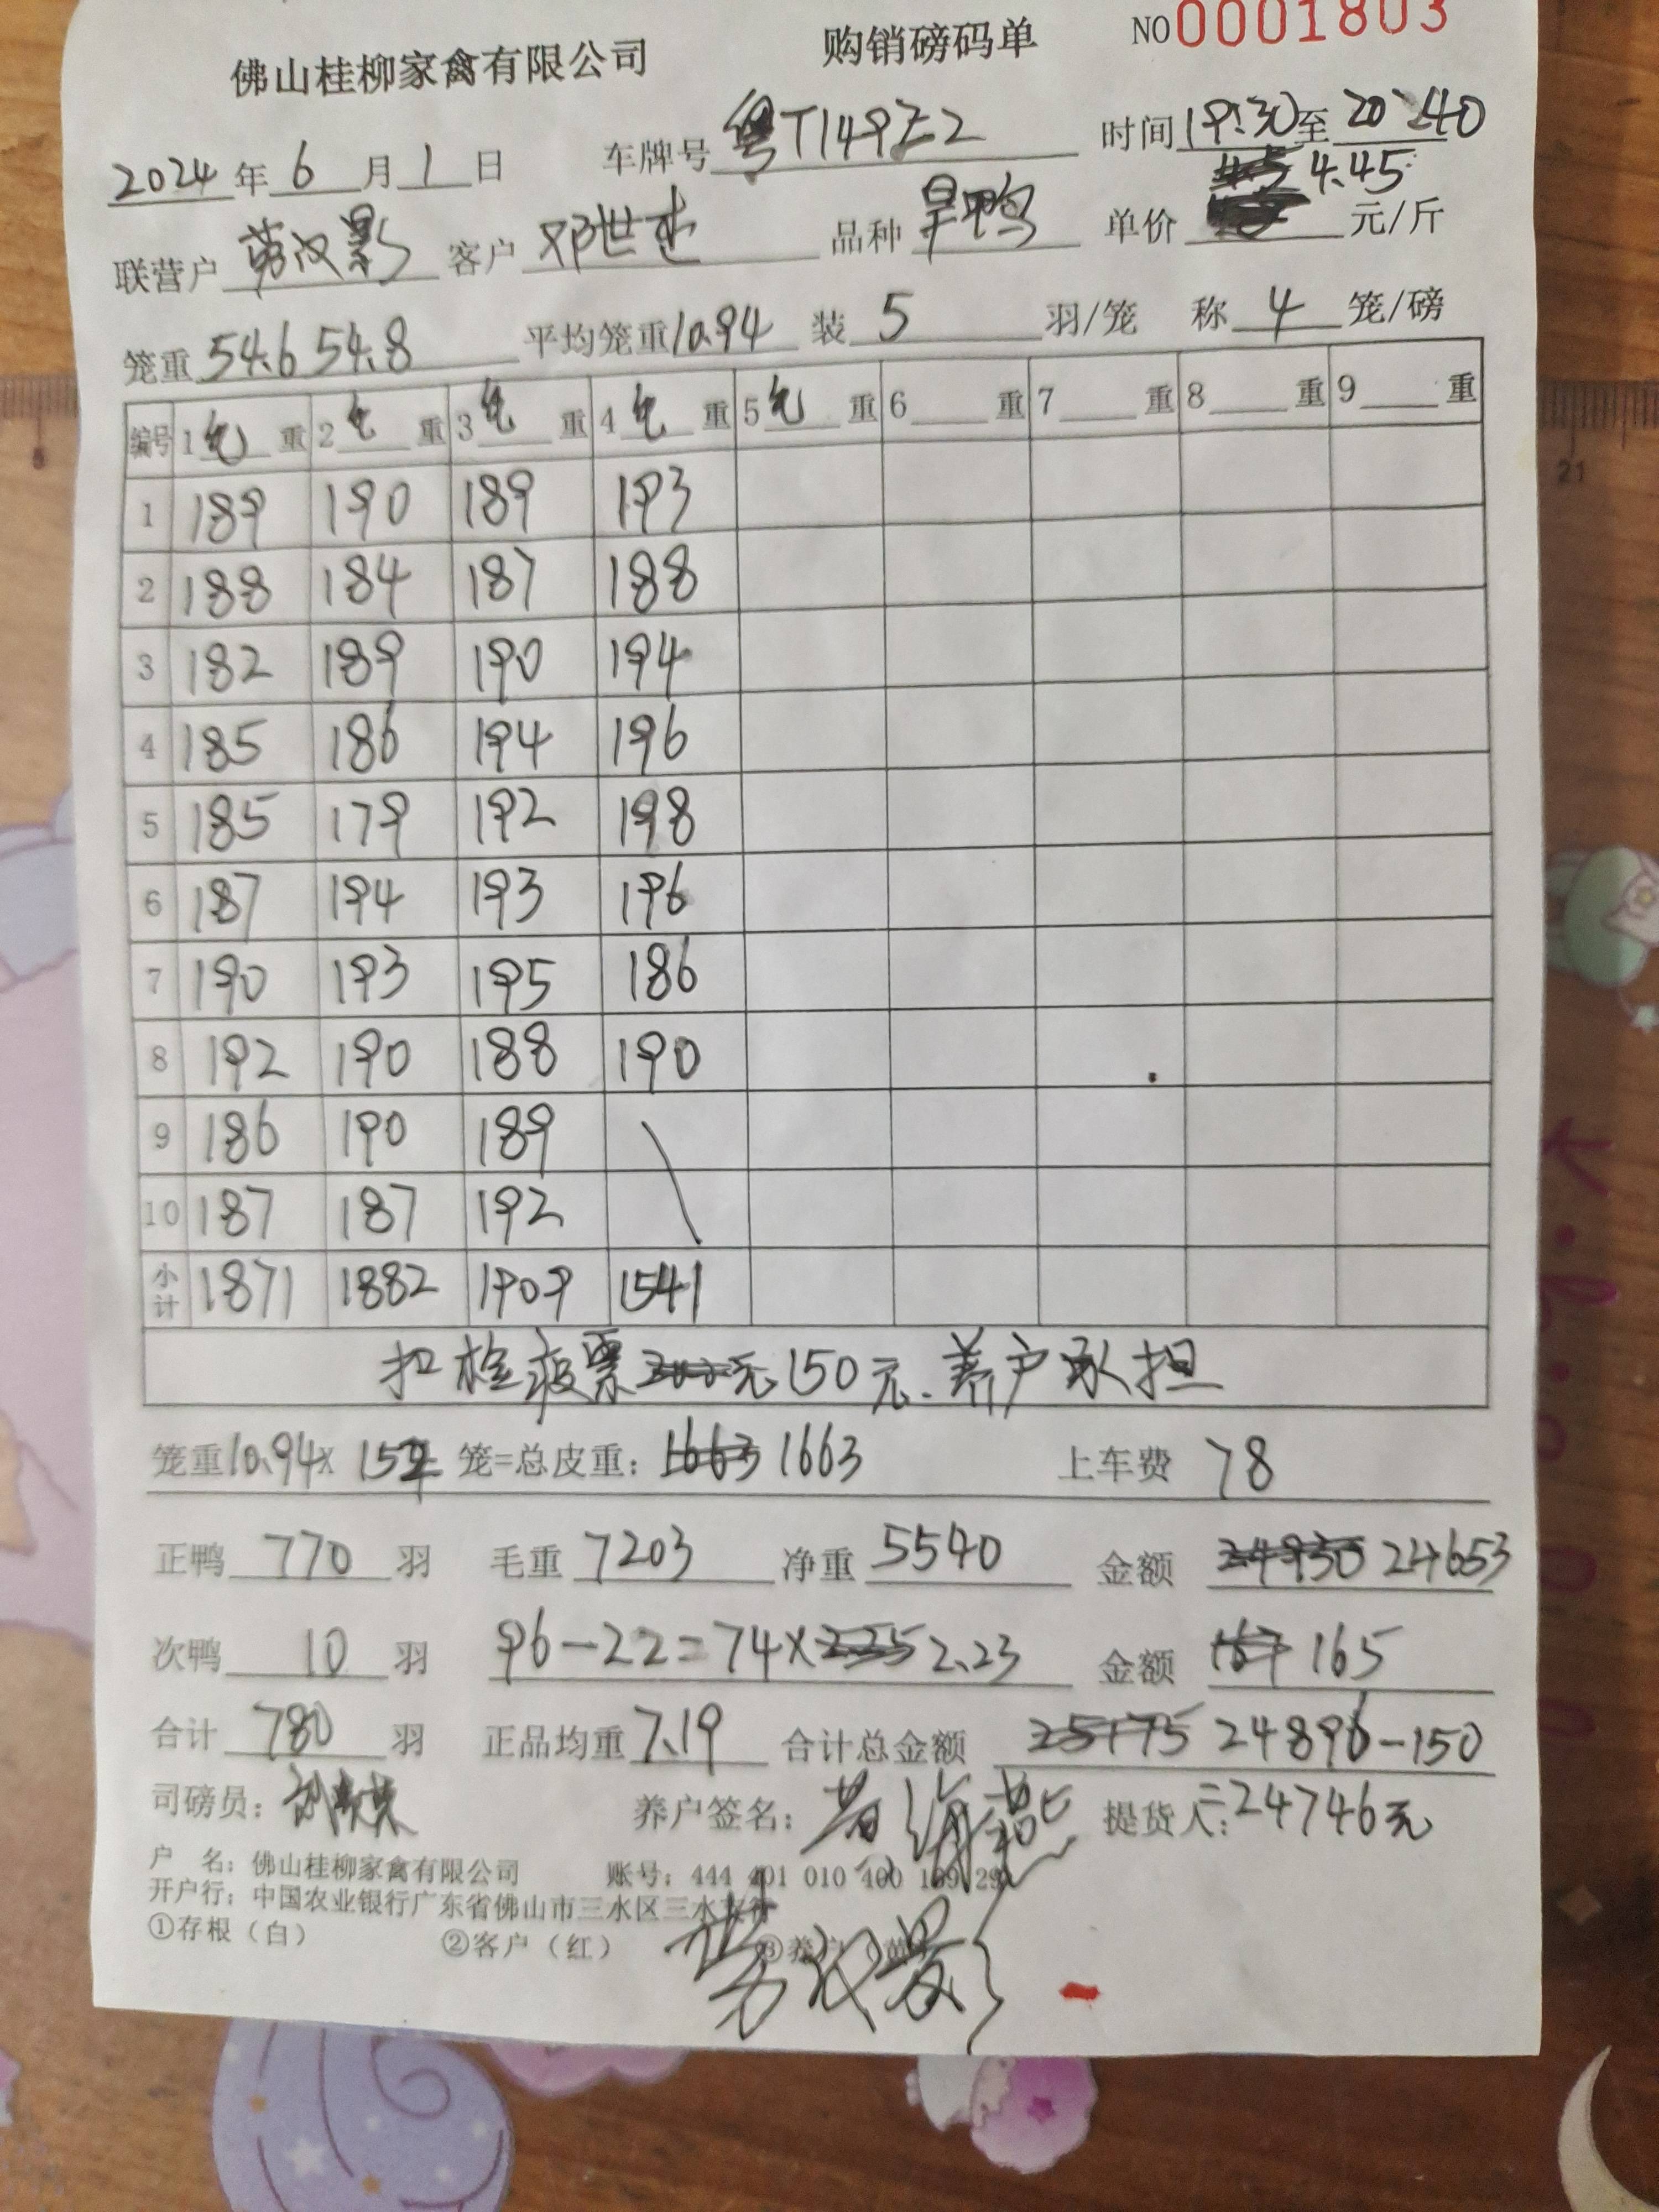 佛山桂柳家禽有限公司 购销磅码单 NO 0001803
2024年6月1日 车牌号 粤T149Z2 时间 19:30至20:40
联营户 劳汉影 客户 邓世 品种 旱鸭 单价 4.45 元/斤
笼重 54.6 54.8 平均笼重 10.94 装 5 羽/笼 称 4 笼/磅
编号 1 毛 重 2 毛 重 3 毛 重 4 毛 重 5 毛 重 6 重 7 重 8 重 9 重
1 189 190 189 193
2 188 184 187 188
3 182 189 190 194
4 185 186 194 196
5 185 179 192 198
6 187 194 193 196
7 190 193 195 186
8 192 190 188 190
9 186 190 189
10 187 187 192
小计 1871 1882 1909 1541
扣检疫票 150元.养户承担
笼重10.94×152 笼=总皮重: 1663 1663 上车费 78
正鸭 770 羽 毛重 7203 净重 5540 金额 24930 24653
次鸭 10 羽 96-22=74×2.25 2.23 金额 167 165
合计 780 羽 正品均重 7.19 合计总金额 25175 24896-150
司磅员: 养户签名: 提货人: =24746元
户 名: 佛山桂柳家禽有限公司 账号: 444 401 010 400
开户行: 中国农业银行广东省佛山市三水区三水支行
①存根(白) ②客户(红) ③养户(黄)
劳汉影